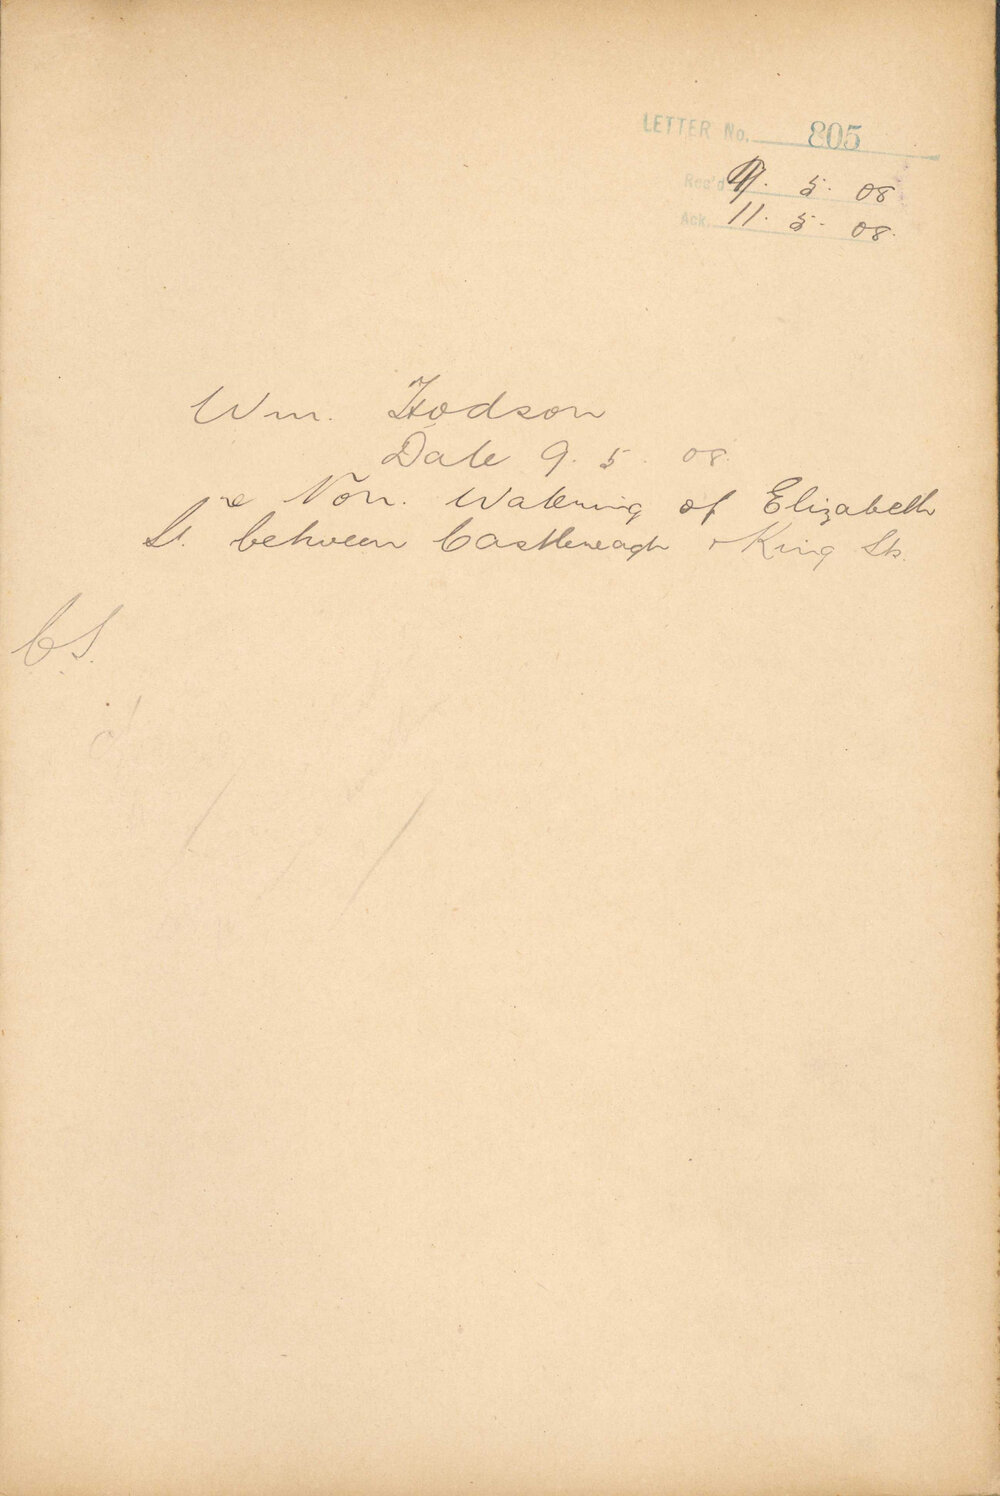 LETTER No. 805
Rec'd 9. 5. 08
Ack. 11. 5. 08.
Wm. Hodson
Date 9. 5. 08.
re Non. Watering of Elizabeth
St. between Castlereagh & King Sts.